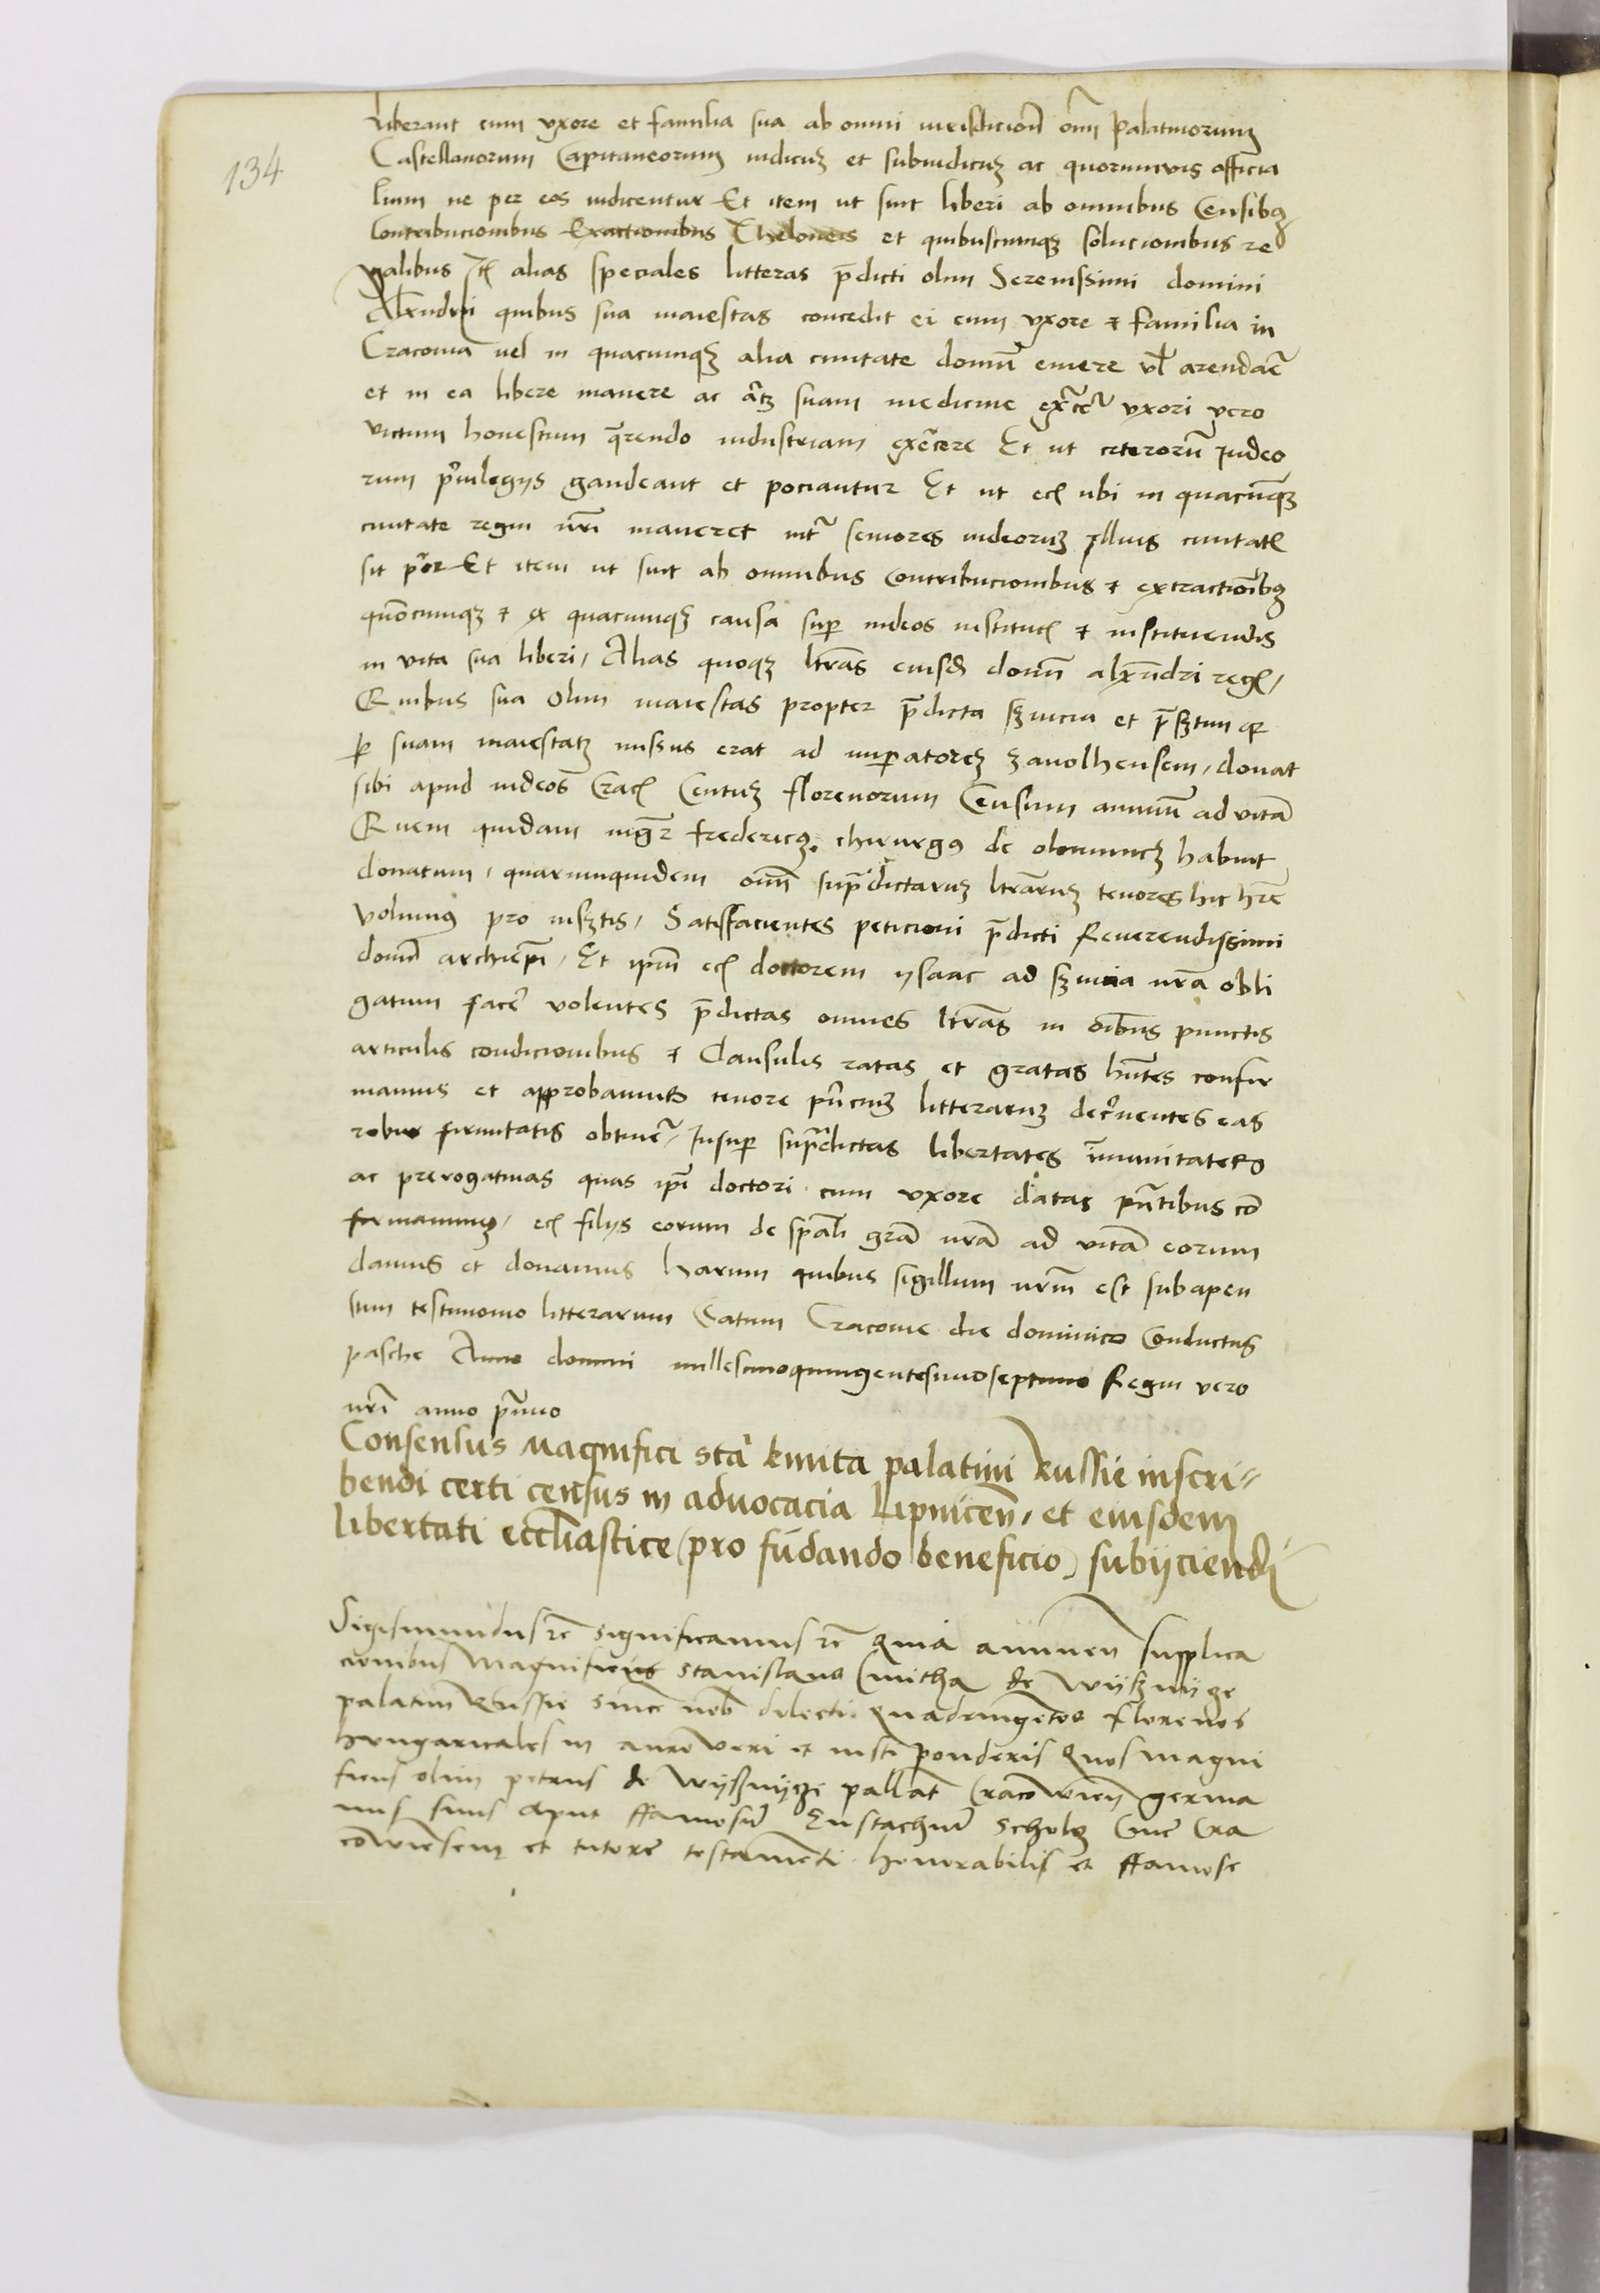 134
liberant cum uxore et familia sua ab omni iurisdicion̄ om̄ palatinorum
Castellanorum Capitaneorum iudicuz et subiudicuz ac quorumvis officia
lium ne per eos iudicentur Et item ut sint liberi ab omnibus Censibꝫ
Contribucionibus Exactionibus Theloneis et quibuscumqꝫ solucionibus re
galibus It̄ alias speciales litteras p̄dicti olim Serenissimi domini
Alx̄ndri quibus sua maiestas concedit ei cum uxore et familia in
Cracovia vel in quacumqꝫ alia civitate domū emere vl̄ arendar̄
et in ea libere manere ac artꝫ suam medicine ex̄cer̄ uxori vero
victum honestum q̄rendo industriam ex̄cere Et ut ceterorū Iudeo
rum p̄vilegijs gaudeant et pociantur Et ut ec̄ ubi in quacūqꝫ
civitate regni nr̄i maneret int̄ seniores iudeorum illius civitat̄
sit p̄or Et item ut sint ab omnibus contribucionibus et extractionibꝫ
quōcumqꝫ et ex quacumqꝫ causa sup̄ iudeos institut̄ et instituendis
in vita sua liberi, Alias quoqꝫ lr̄as eiusd̄ domn̄ alx̄ndri reḡ,
Quibus sua olim maiestas propter p̄dicta s̄vicia et p̄s̄tim qr̄
p̄ suam maiestatꝫ missus erat ad imp̄atorem zavolhensem, donat
sibi apud iudeos Crac̄ Centuꝫ florenorum Censum annuū ad vitā
Quem quidam mgr̄ fredericꝫ chirurgꝫ de olomuncz habuit
donatum, quarumquidem om̄ sup̄dictaruꝫ lr̄aruꝫ tenores hic hr̄e
volumꝫ pro ins̄tis, Satisfacientes peticioni p̄dicti Reverendissimi
domī archiep̄i, Et ip̄m ec̄ doctorem ysaac ad s̄vicia nr̄a obli
gatum facer̄ volentes p̄dictas omnes lr̄as in oībus punctis
articulis condicionibus et Clausulis ratas et gratas hn̄tes confir
mamus et approbamus tenore pn̄cium litteraruꝫ dec̄nentes eas
robur firmitatis obtiner̄, Insup̄ sup̄dictas libertates īmunitates
ac prerogativas quas ip̄i doctori cum uxore datas pn̄tibus cō
firmamus, ec̄ filijs eorum de sp̄ali gr̄a nr̄a ad vitā eorum
damus et donamus harum quibus sigillum nr̄m est subapen
sum testimonio litterarum Datum Cracovie die dominico Conductus
pasche Anno domini millesimoquingentesimoseptimo Regni vero
nr̄i anno p̄mo
Consensus Magnifici sta᷑ kmita palatini Russie inscri=
bendi certi census in advocacia Lipnicen̄, et eiusdem
libertati eccl̄iastice (pro fūdando beneficio) subijciendi
Sigismundus rc̄ significamus rc̄ Quia annuen̄ supplica
cionibus Magnificus Stanislaus Cmitha de Wyssnycze
palatin̄ Russie sinc̄e nob̄ dilecti Quadringētos Florenos
hungaricales in auro veri et iusti ponderis Quos magni
ficus olim petrus de Wyssnycze pallat̄ Cracovien̄ germa
nus suus Aput ffamosū Eustachiū Scholtz Civē Cra
coviensem et tutorē testamēti honorabilis et ffamose